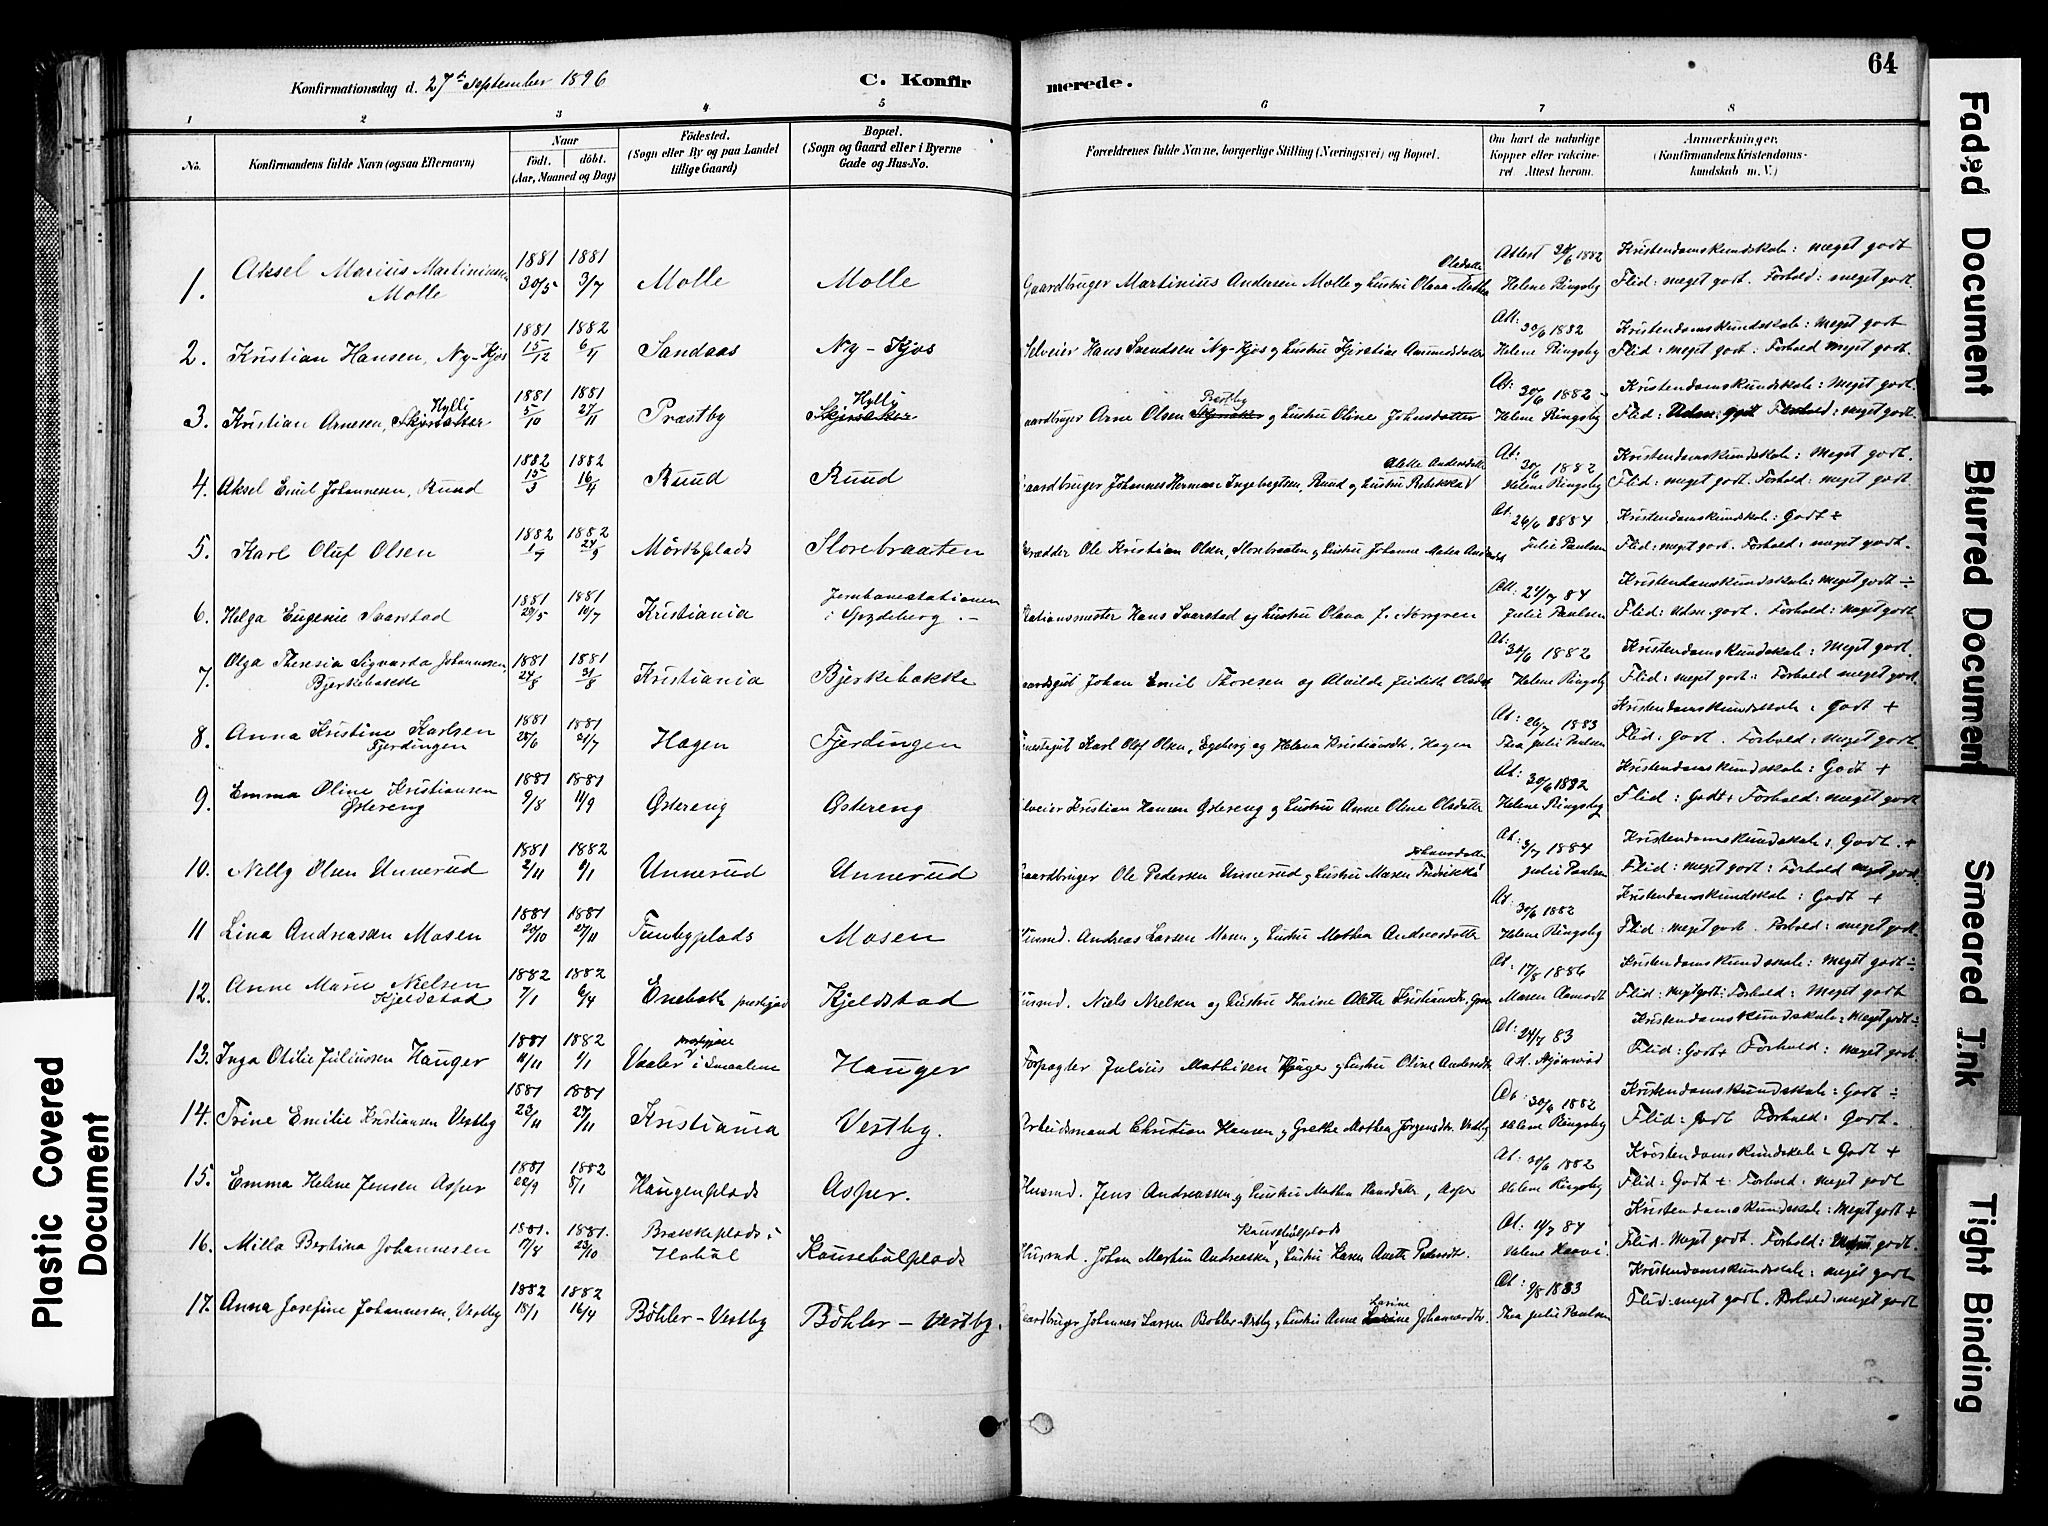 Konfirmationsdag d. 27de September 1896
C. Konfir merede.
64
1 2 3 4 5 6 7 8
No.
Konfirmandens fulde Navn (ogsaa Efternavn)
Naar
födt. döbt.
(Aar, Maaned og Dag)
Födested.
(Sogn eller By og paa Landet tillige Gaard)
Bopæl.
(Sogn og Gaard eller i Byerne Gade og Hus-No.
Forældrenes fulde Navne, borgerlige Stilling (Næringsvei) og Bopæl.
Om havt de naturlige Kopper eller vaccineret. Attest herom.
Anmærkninger.
(Konfirmandens Kristendomskundskab m. V.)
1. Aksel Marius Martiniussen Molle 1881 30/5 1881 3/7 Molle Molle Gaardbruger Martinius Andersen Molle og Hustru Olava Mathea Olsdatter Attest 30/6 1882 Helene Ringsby Kristendomskundskab: meget godt Flid: meget godt. Forhold: meget godt.
2. Kristian Hansen, Ny-Kjos 1881 15/12 1882 6/4 Sandaas Ny-Kjos Selveier Hans Svendsen Ny-Kjos og Hustru Kjerstine Amundsdatter Att: 30/6 1882 Helene Ringsby Kristendomskundskab: Meget godt. Flid: meget godt. Forhold meget godt.
3. Kristian Arnesen, Hylli 1881 5/10 1881 27/11 Præstby Hylli Gaardbruger Arne Olsen Præstby og Hustru Oline Johnsdatter At: 30/6 1882 Helene Ringsby Kristendomskundskab: Meget godt. Flid: Forhold: meget godt.
4. Aksel Emil Johannesen, Ruud 1882 15/3 1882 16/4 Ruud Ruud Gaardbruger Johannes Herman Ingebrigtsen, Ruud og Hustru Rebekka Olette Andersdatter At: 30/6 1882 Helene Ringsby Kristendomskundskab: Meget godt. Flid: meget godt. Forhold: meget godt
5. Karl Oluf Olsen 1882 1882 24/9 Mörkplads Storebraaten Ole Kristian Olsen, Storebraaten og Hustru Johanne Mathea At: 26/6 1884 Julie Paulsen Kristendomskundskab: Godt ÷ Flid: meget godt. Forhold: meget godt.
6. Helga Eugenie Svarstad 1881 29/5 1881 10/7 Kristiania Jernbanestationen i Spydeberg.- Stationsmester Hans Svarstad og Hustru Olava f. Norgren Att: 24/7 84 Julie Paulsen Kristendomskundskab: meget godt ÷ Flid: Udm. godt. Forhold: meget godt
7. Olga Theresia Sigvarda Johannesen, Bjerkebakke 1881 24/8 1881 31/8 Kristiania Bjerkebakke Gaardsgut Johan Emil Thoresen og Alvilde Judith Olsdat At: 30/6 1882 Helene Ringsby Kristendomskundskab: Meget godt. Flid: meget godt: Forhold meget godt.
8. Anna Kristine Karlsen Fjerdingen 1881 25/6 1881 24/7 Hagen Fjerdingen Tjenestegut Karl Olof Olsen, Egeberg og Helena Kristiansdtr. Hagen At: 26/7 1883 Thea Julie Paulsen Kristendomskundskab: Godt + Flid: Godt. Forhold: meget godt.
9. Emma Oline Kristiansen Østereng 1881 9/8 1881 11/9 Østereng Østereng Selveier Kristian Hansen Østereng og Hustru Anne Oline Olsdatter At: 30/6 1882 Helene Ringsby Kristendomskundskab: Godt + Flid: Godt + Forhold: meget godt
10. Nelly Olsen Unnerud 1881 2/11 1882 8/1 Unnerud Unnerud Gaardbruger Ole Pedersen Unnerud og Hustru Maren Fredrikka Johansdatter At: 3/7 1884 Julie Paulsen Kristendomskundskab: Godt. + Flid: meget godt: Forhold meget godt.
11 Lina Andreasen Mosen 1881 20/10 1881 27/11 Tunbyplads Mosen Husmd. Andreas Larsen Mosen og Hustru Mathea Andreasdatter At 30/6 1882 Helene Ringsby Kristendomskundskab: Godt + Flid: meget godt. Forhold: meget godt.
12. Anne Marie Nielsen Kjeldstad 1882 7/1 1882 6/4 Enebak prestgjæld Kjeldstad Husmd. Niels Nielsen og Hustru Thrine Olette Kristiansdtr. At: 17/8 1886 Maren Aamodt Kristendomskundskab: meget godt ÷ Flid: meget godt: Forhold: meget godt
13. Inga Otilie Juliussen Hauger 1881 11/11 1882 1/1 Vaaler prestgjæld i Smaalene Hauger Forpagter Julius Mathisen Hauger og Hustru Oline Andersdtr At: 24/7 83 Kristendomskundskab: Meget godt ÷ Flid: Godt + Forhold: meget godt.
14. Trine Emilie Kristiansen Vestby 1881 23/11 1881 27/11 Kristiania Vestby. Arbeidsmand Christian Hansen og Grethe Mathea Jörgensdtr. Vestby At: 30/6 1882 Helene Ringsby Kristendomskundskab: Godt ÷ Flid: Godt Forhold: Godt.
15. Emma Helene Jensen Asper 1881 22/9 1882 8/1 Haugenplads Asper. Husmd. Jens Andreassen og Hustru Mathea Hansdatr, Asper At: 30/6 1882 Helene Ringsby Kristendomskundskab: Godt + Flid: Godt + Forhold: meget godt
16. Milla Bertina Johannesen 1881. 7/8 1881. 23/10 Brekkeplads i Hobøl Kausebølplads Husmd. Johan Martin Andreassen, Kausebölplads Hustru Karen Anette Pedersdtr. At: 11/7 84 Kristendomskundskab: Meget godt + Flid. Meget godt. Forhold: Meget godt.
17. Anna Josefine Johannesen, Vestby 1882 18/1 1882 16/4 Böhler-Vestby Böhler-Vestby. Gaardbruger Johannes Larsen Böhler-Vestby og Hustru Anne Larine Johannesdtr. At: 9/8 1883 Thea Julie Paulsen Kristendomskundskab: meget godt Flid: meget godt. Forhold: meget godt
Faded Document
Blurred Document
Smeared Ink
Tight Binding
Plastic Covered Document